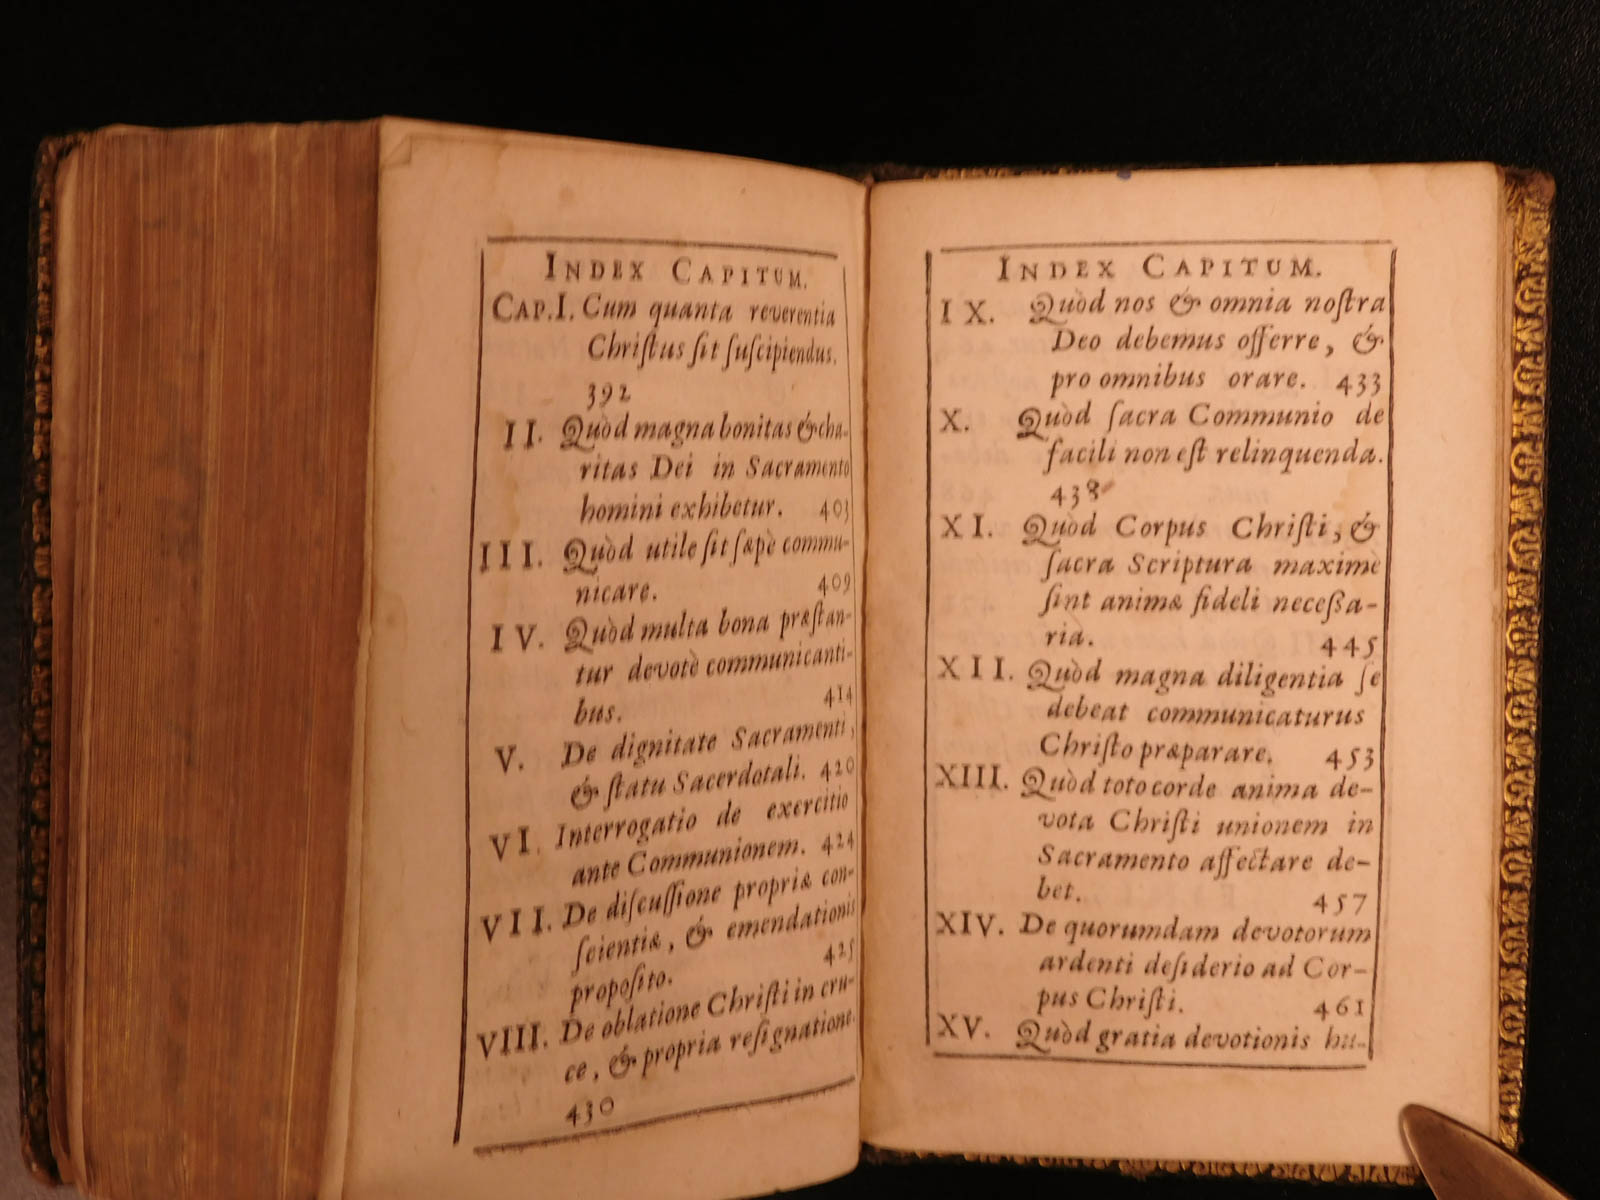 INDEX CAPITUM.
CAP. I. Cum quanta reverentia
Chriſtus ſit ſuſcipiendus.
392
II. Quòd magna bonitas & cha-
ritas Dei in Sacramento
homini exhibetur. 403
III. Quòd utile ſit ſæpè commu-
nicare. 409
IV. Quòd multa bona præſtan-
tur devotè communicanti-
bus. 414
V. De dignitate Sacramenti,
& ſtatu Sacerdotali. 420
VI. Interrogatio de exercitio
ante Communionem. 424
VII. De diſcuſſione propriæ con-
ſcientiæ, & emendationis
propoſito. 425
VIII. De oblatione Chriſti in cru-
ce, & propria reſignatione.
430
INDEX CAPITUM.
IX. Quòd nos & omnia noſtra
Deo debemus offerre, &
pro omnibus orare. 433
X. Quòd ſacra Communio de
facili non eſt relinquenda.
438
XI. Quòd Corpus Chriſti, &
ſacra Scriptura maximè
ſint animæ fideli neceßa-
ria. 445
XII. Quòd magna diligentia ſe
debeat communicaturus
Chriſto præparare. 453
XIII. Quòd toto corde anima de-
vota Chriſti unionem in
Sacramento affectare de-
bet. 457
XIV. De quorumdam devotorum
ardenti deſiderio ad Cor-
pus Chriſti. 461
XV. Quòd gratia devotionis hu-